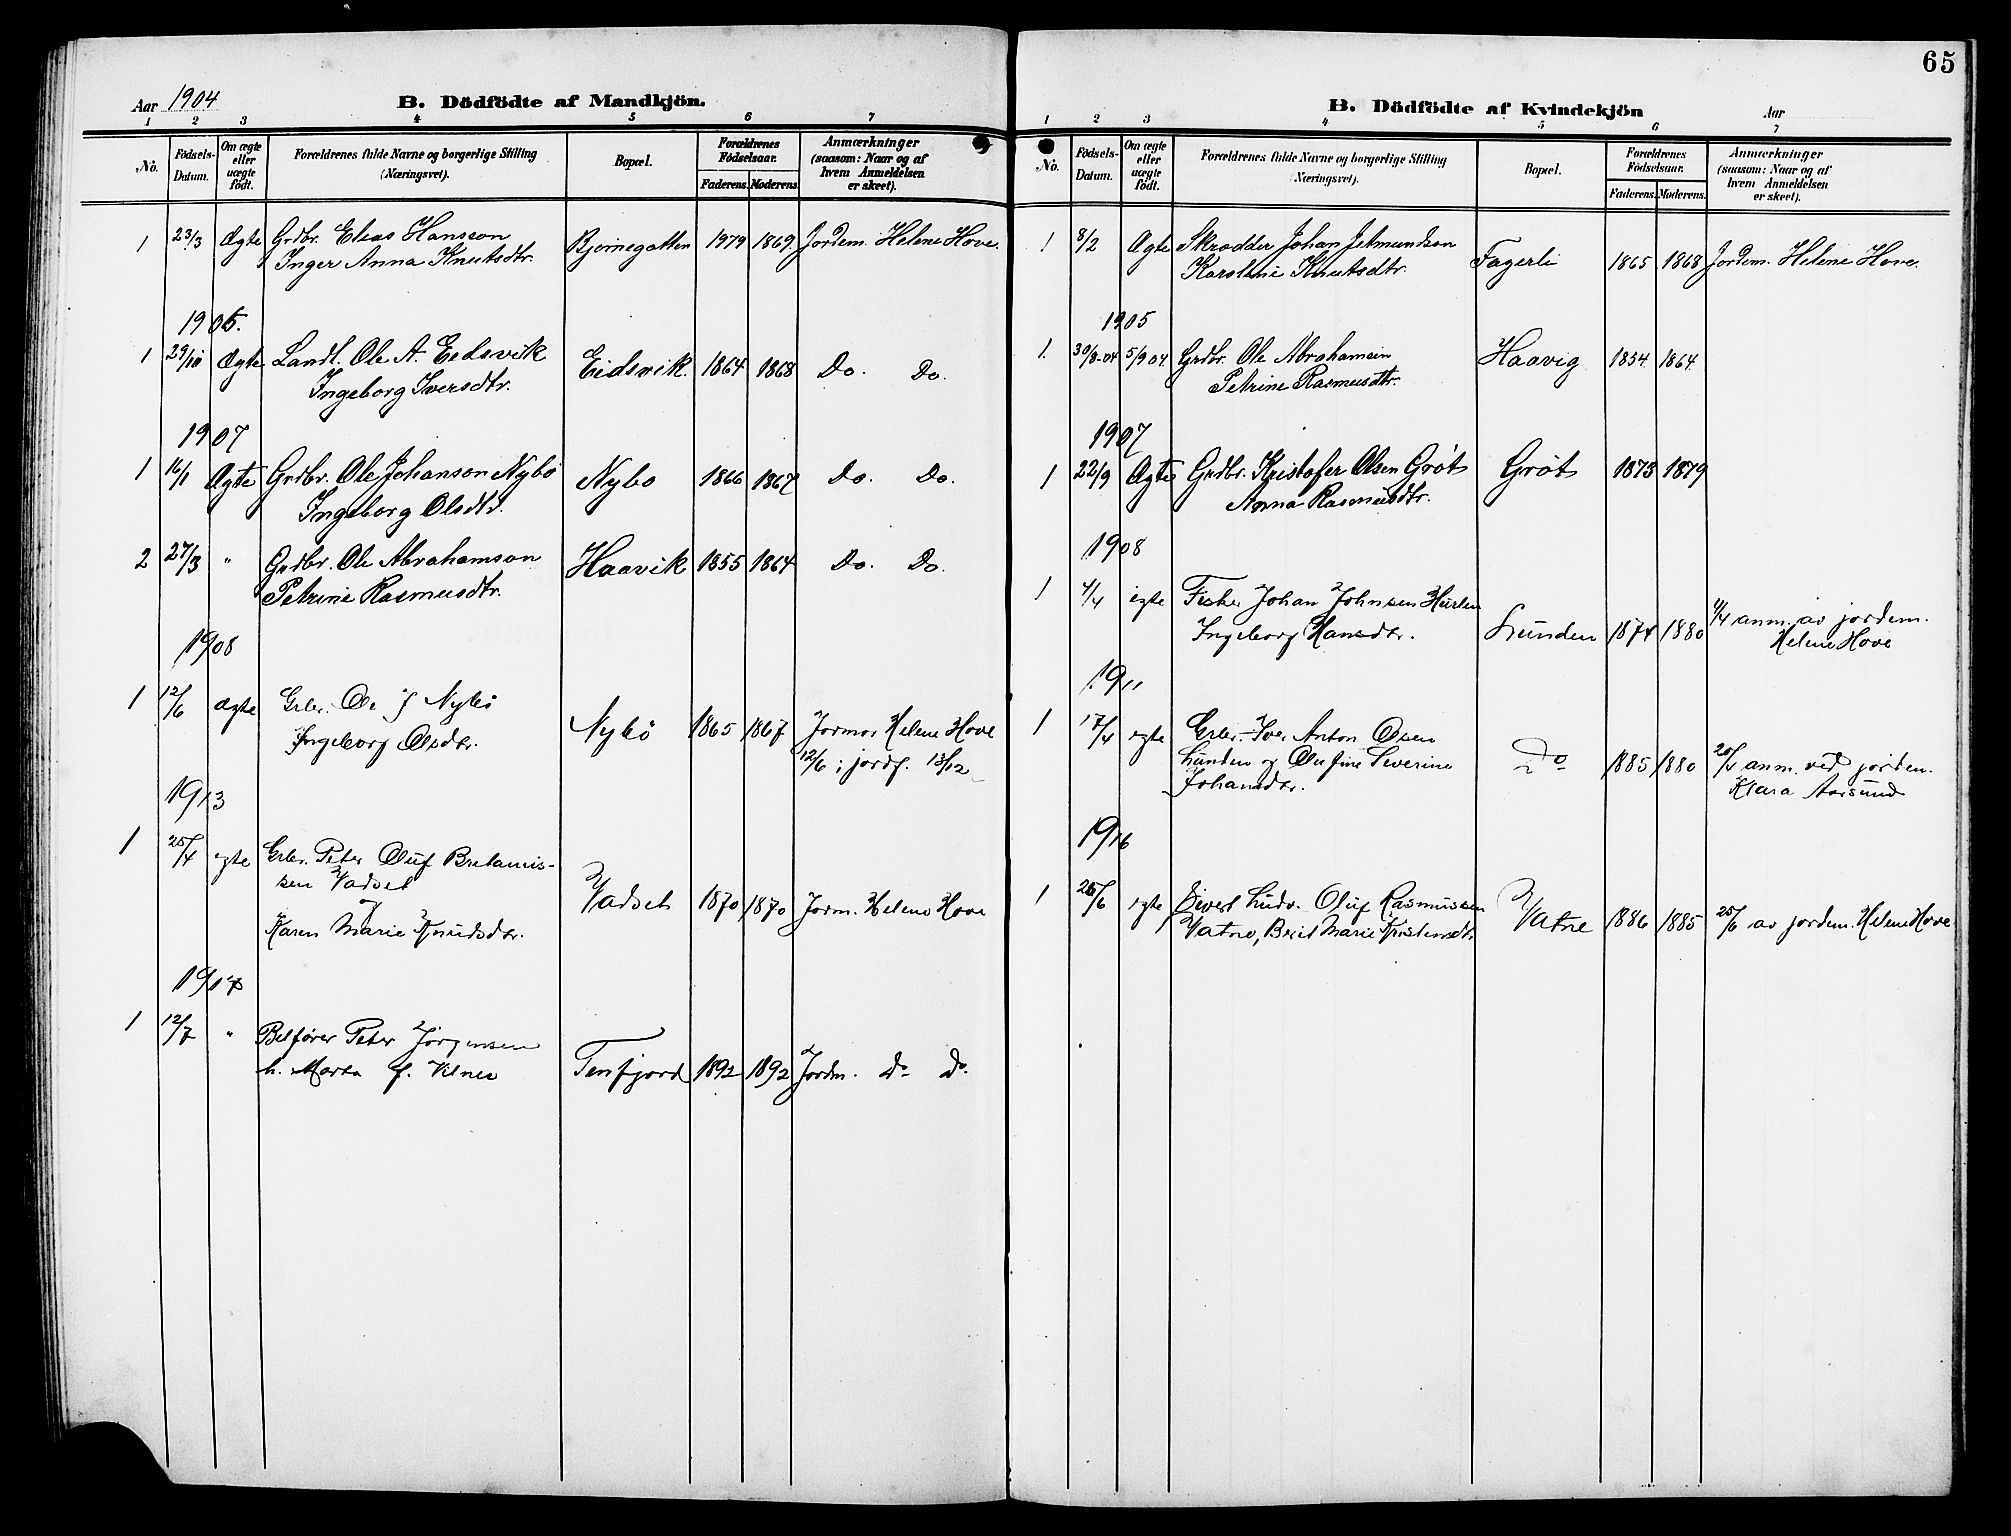 65
Aar 1904
B. Dödfödte af Mandkjön.
1 2 3 4 5 6 7
No.
Födsels-Datum.
Om ægte eller uægte födt.
Forældrenes fulde Navne og borgerlige Stilling (Næringsvei).
Bopæl.
Forældrenes Födselsaar.
Faderens. Moderens.
Anmærkninger (saasom: Naar og af hvem Anmeldelsen er skeet).
1 23/3 Ægte Grdbr. Elias Hanson Bjørnegatten 1979 1869. Jordem. Helene Hove.
Inger Anna Knutsdtr.
1905.
1 29/10 Ægte Landl. Ole A. Eidsvik Eidsvik. 1864 1868 Do. Do.
Ingeborg Iversdtr.
1907
1 16/1 Ægte Grdbr. Ole Johanson Nybø Nybø 1866 1867 Do. Do.
Ingeborg Olsdtr.
2 27/3 " Grdbr. Ole Abrahamson Haavik 1855 1864 Do. Do.
Petrine Rasmusdtr.
1908
1 12/6 ægte Grbr. Ole J Nybö Nybö 1865 1867 Jormor Helene Hove
Ingeborg Olsdtr. 12/6; jordf. 13/12
1913
1 25/4 egte Grbr. Peter Oluf Bretanus-
sen Vadset Vadset 1870 1870 Jorm. Helene Hove
og
Karen Marie Knudsdtr.
1917
1 12/7 " Peter Jörgensen
h. Marta f. Vilnes Tenfjord 1892 1892 Jordm. Do Do.
B. Dödfödte af Kvindekjön
Aar
1 2 3 4 5 6 7
No.
Födsels-Datum.
Om ægte eller uægte födt.
Forældrenes fulde Navne og borgerlige Stilling (Næringsvei).
Bopæl.
Forældrenes Födselsaar.
Faderens. Moderens.
Anmærkninger (saasom: Naar og af hvem Anmeldelsen er skeet).
1 8/2 Ægte Skrædder Johan Jetmundson Fagerli 1865 1868 Jordem. Helene Hove.
Karoline Knutsdtr.
1905
1. 30/8-04 5/9 04. Grdbr. Ole Abrahamsen Haavig 1854 1864
Petrine Rasmusdtr.
1907
1 22/9 Ægte Grdbr. Kristofer Olsen Grøt Grøt 1873 1879
Anna Rasmusdtr.
1908
1 4/4 egte Fisker Johan Johnsen Hurlen
Ingeborg Hansdtr. Lunden 1874 1880 4/4 anm. av jordem.
Helene Hove
1911
1 17/4 egte Grbr. Iver Anton Olsen
Lunden og Olufine Severine Do 1885 1880 20/4 anm. ved jordem.
Johansdtr. Klara Aarsund
1916
1 26/6 egte Sivert Ludv. Oluf Rasmussen
Vatne, Brit Marie Kristensdtr. Vatne 1886 1885 25/6 av jordem. Helene Hove